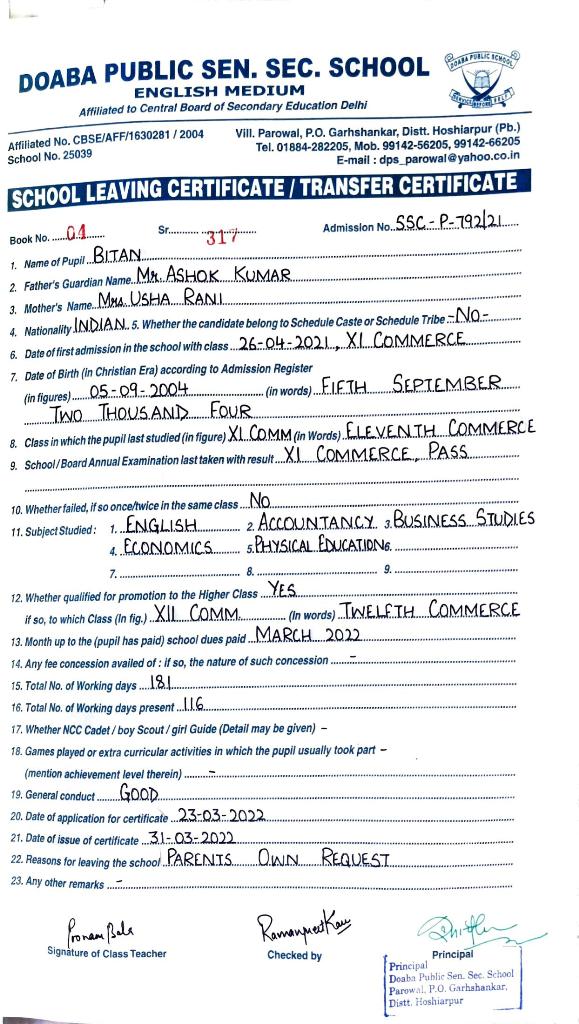 DOABA PUBLIC SEN. SEC. SCHOOL
ENGLISH MEDIUM
Affiliated to Central Board of Secondary Education Delhi
DOABA PUBLIC SCHOOL
SERVICE BEFORE SELF
Affiliated No. CBSE/AFF/1630281 / 2004
School No. 25039
Vill. Parowal, P.O. Garhshankar, Distt. Hoshiarpur (Pb.)
Tel. 01884-282205, Mob. 99142-56205, 99142-66205
E-mail : dps_parowal@yahoo.co.in
SCHOOL LEAVING CERTIFICATE / TRANSFER CERTIFICATE
Book No. 04 Sr. 317 Admission No. SSC-P-792/21
1. Name of Pupil BITAN
2. Father's Guardian Name Mr. ASHOK KUMAR
3. Mother's Name Mrs USHA RANI
4. Nationality INDIAN 5. Whether the candidate belong to Schedule Caste or Schedule Tribe -No-
6. Date of first admission in the school with class 26-04-2021, XI COMMERCE
7. Date of Birth (in Christian Era) according to Admission Register
(in figures) 05-09-2004 (in words) FIFTH SEPTEMBER
TWO THOUSAND FOUR
8. Class in which the pupil last studied (in figure) XI COMM (in Words) ELEVENTH COMMERCE
9. School / Board Annual Examination last taken with result XI COMMERCE, PASS
10. Whether failed, if so once/twice in the same class NO
11. Subject Studied : 1. ENGLISH 2. ACCOUNTANCY 3. BUSINESS STUDIES
4. ECONOMICS 5. PHYSICAL EDUCATION 6.
7. 8. 9.
12. Whether qualified for promotion to the Higher Class YES
if so, to which Class (In fig.) XII COMM. (In words) TWELFTH COMMERCE
13. Month up to the (pupil has paid) school dues paid MARCH 2022
14. Any fee concession availed of : if so, the nature of such concession -
15. Total No. of Working days 181
16. Total No. of Working days present 116
17. Whether NCC Cadet / boy Scout / girl Guide (Detail may be given) -
18. Games played or extra curricular activities in which the pupil usually took part -
(mention achievement level therein) -
19. General conduct GOOD
20. Date of application for certificate 23-03-2022
21. Date of issue of certificate 31-03-2022
22. Reasons for leaving the school PARENTS OWN REQUEST
23. Any other remarks -
Poonam Bala
Ramanpreet Kau
Signature of Class Teacher
Checked by
Principal
Principal
Doaba Public Sen. Sec. School
Parowal, P.O. Garhshankar,
Distt. Hoshiarpur